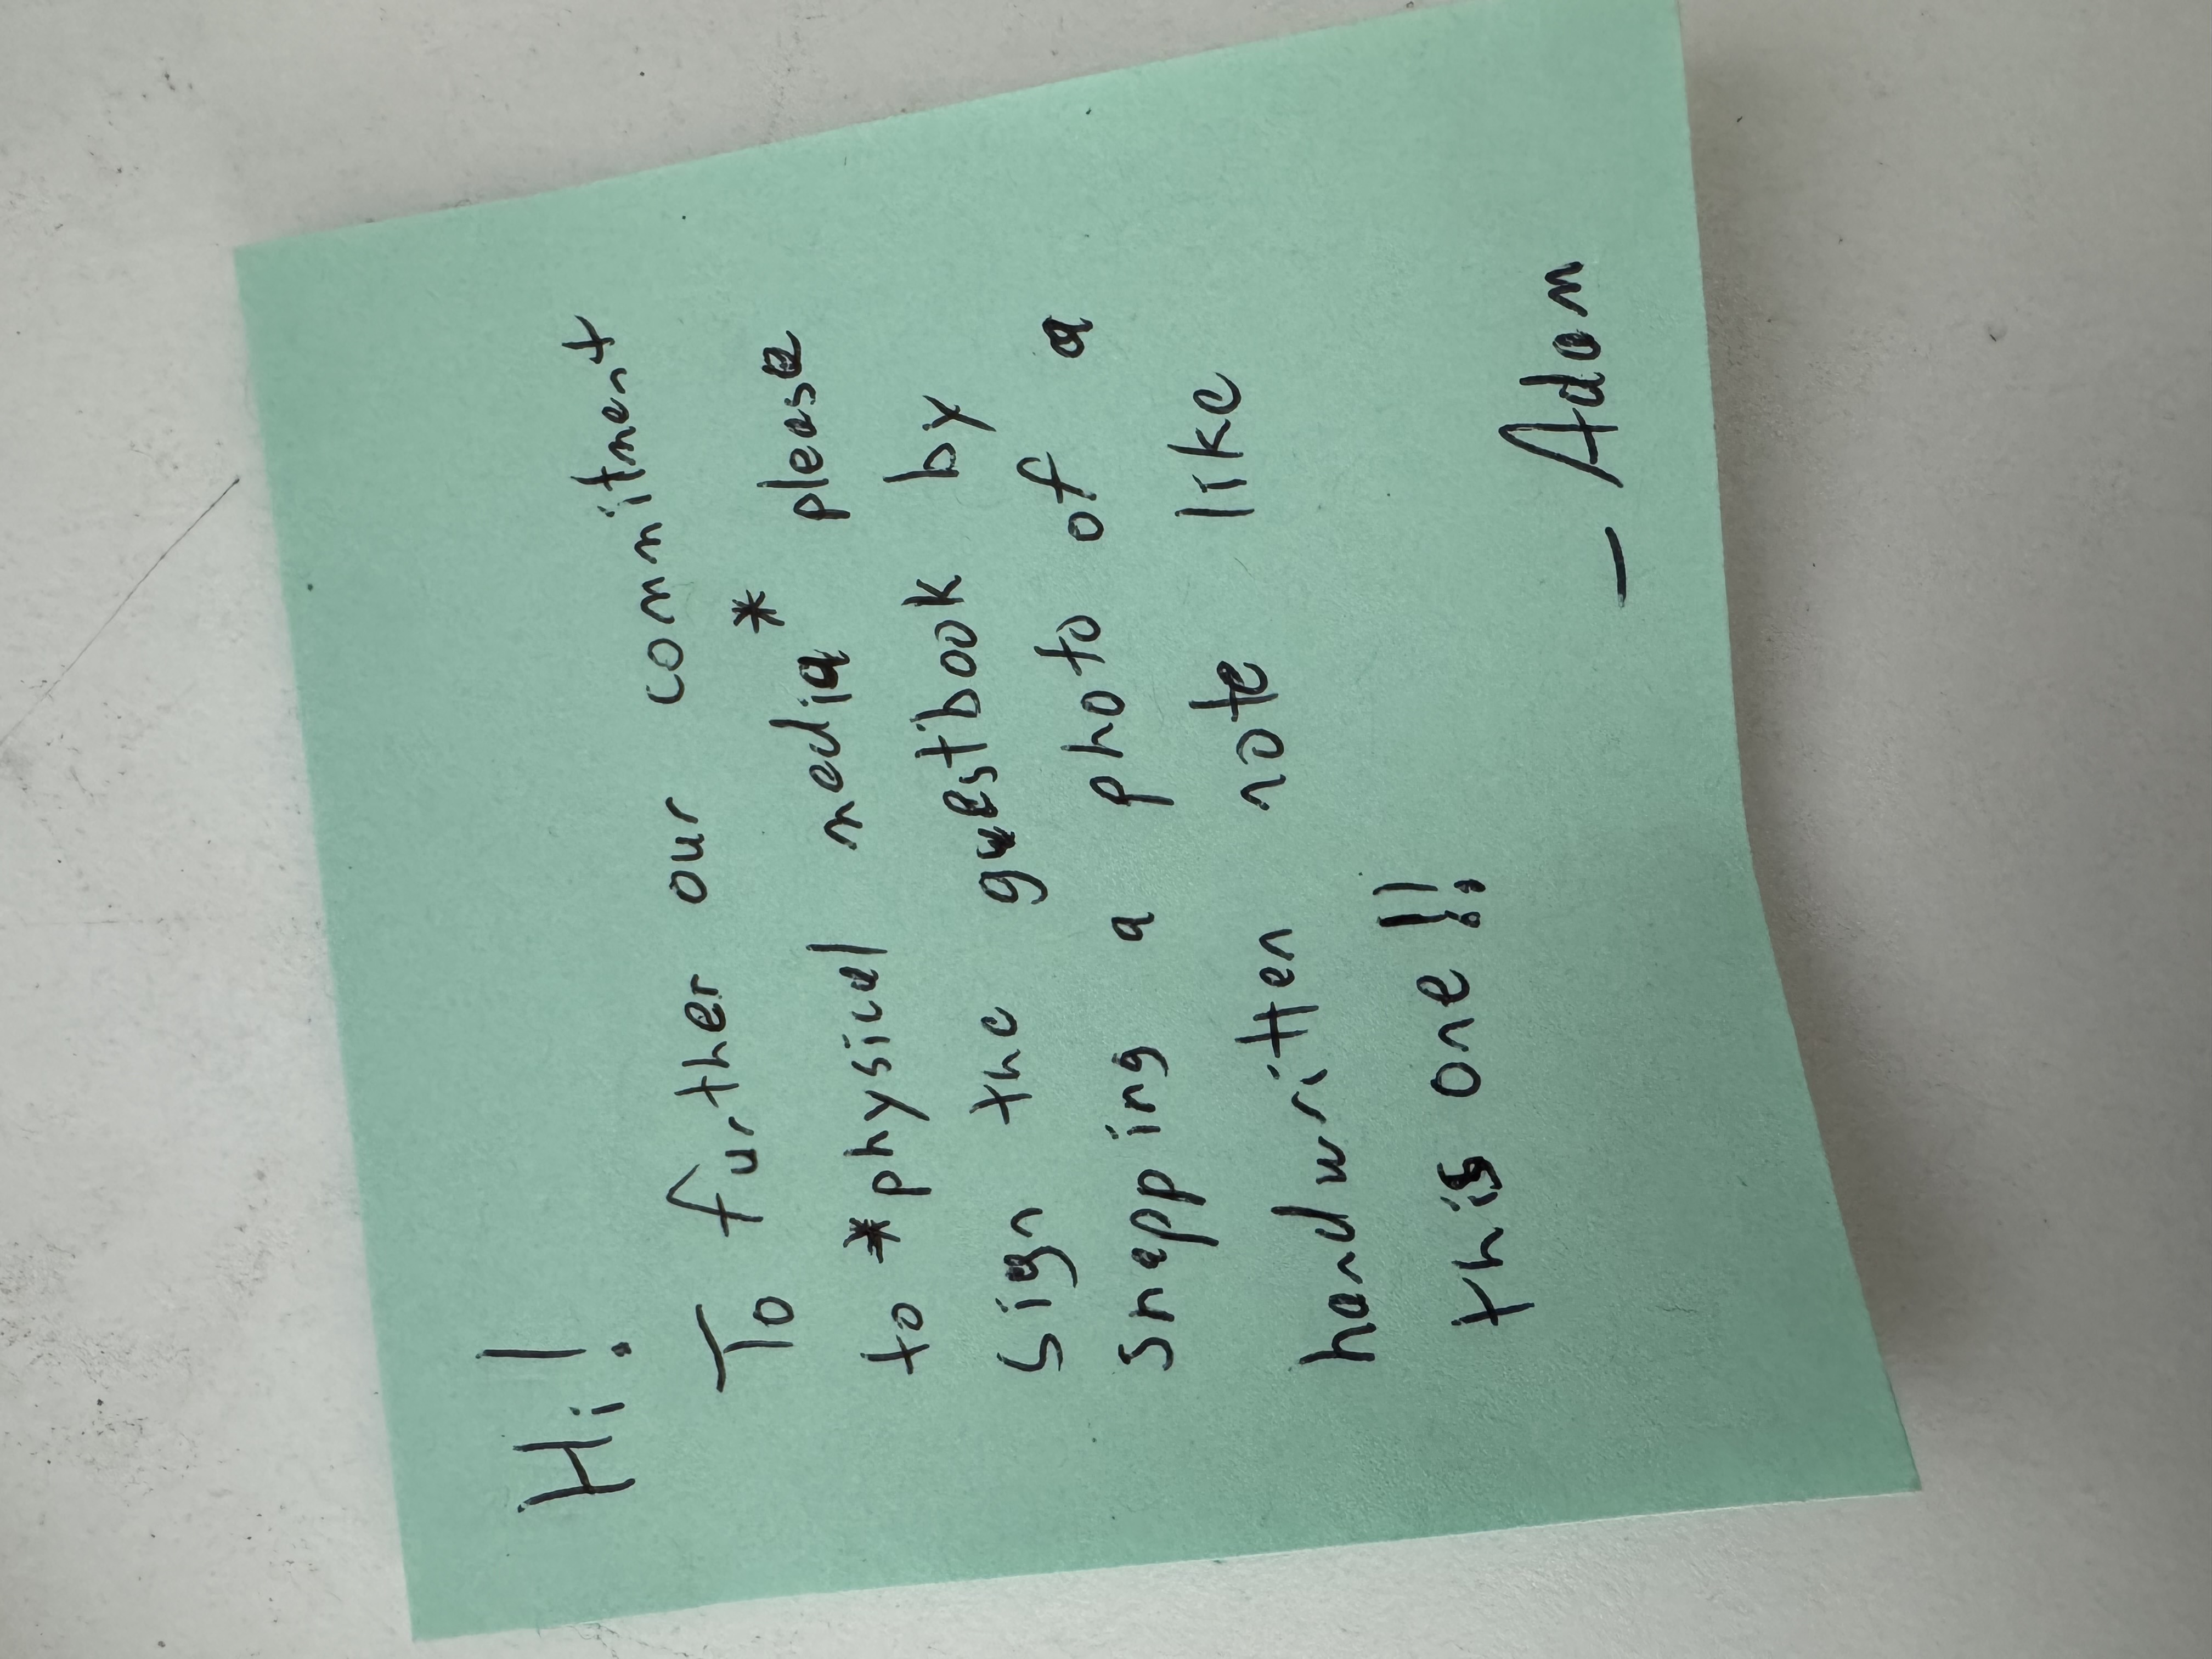 Hi!
To further our commitment
to *physical media* please
sign the guestbook by
snapping a photo of a
handwritten note like
this one!!
- Adam